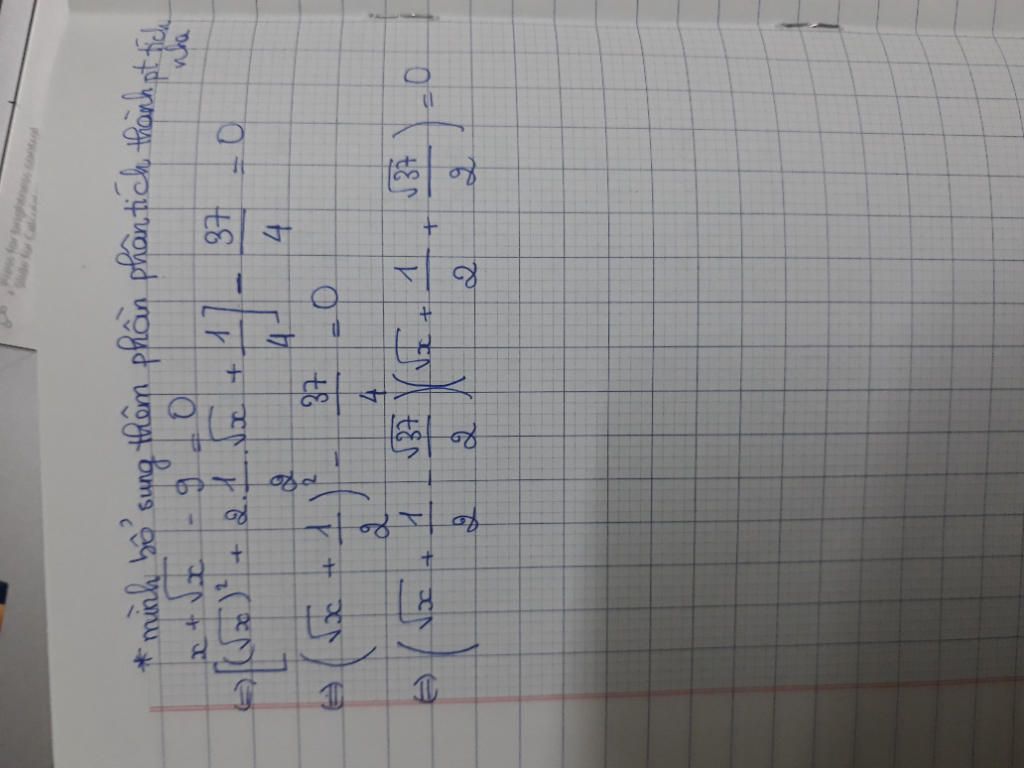 * mình bổ sung thêm phần phân tích thành pt tích nha
x + √x - 9 = 0
⇔ [(√x)² + 2.1/2.√x + 1/4] - 37/4 = 0
⇔ (√x + 1/2)² - 37/4 = 0
⇔ (√x + 1/2 - √37/2)(√x + 1/2 + √37/2) = 0